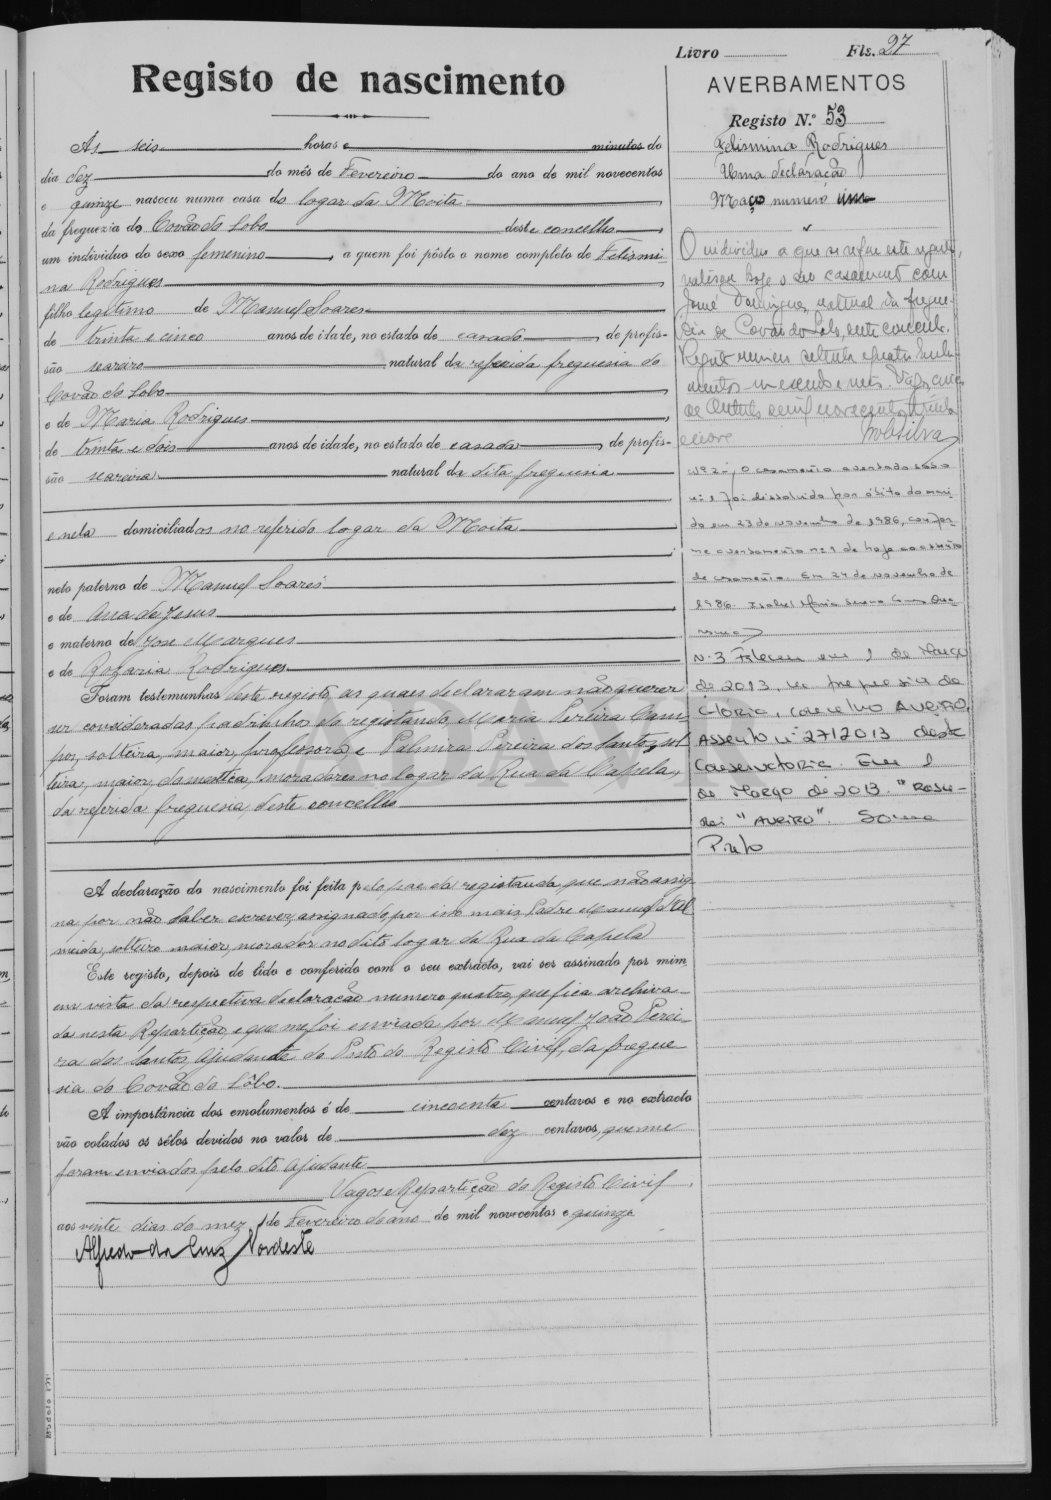 Livro Fls. 27
Registo de nascimento
As seis horas e minutos do
dia dez do mês de Fevereiro do ano de mil novecentos
e quinze nasceu numa casa do logar da Moita
da freguezia do Covão do Lobo deste concelho,
um individuo do sexo femenino, a quem foi pôsto o nome completo de Felismi
na Rodrigues
filho legitimo de Manuel Soares
de trinta e cinco anos de idade, no estado de casado, de profis-
são seareiro natural da referida freguesia do
Covão do Lobo
e de Maria Rodrigues
de trinta e dois anos de idade, no estado de casada, de profis-
são seareira natural da dita freguesia
e nela domiciliados no referido logar da Moita
neto paterno de Manuel Soares
e de Ana de Jesus
e materno de Jose Marques
e de Rozaria Rodrigues
Foram testemunhas deste registo, as quaes declararam não querer
ser consideradas padrinhos do registando, Maria Pereira Cam
pos, solteira, maior, professora, e Palmira Pereira dos Santos, sol
teira, maior, domestica, moradores no logar da Rua da Capela,
da referida freguesia, deste concelho
A declaração do nascimento foi feita pelo pae da registanda, que não assig
na por não saber escrever, assignado por isso mais Padre Manuel d'Al
meida, solteiro maior, morador no dito logar da Rua da Capela
Este registo, depois de lido e conferido com o seu extracto, vai ser assinado por mim
em vista da respectiva declaracão numero quatro, que fica archiva-
da nesta Repartição, e que me foi enviada por Manuel João Perei-
ra dos Santos, Ajudante do Posto do Registo Civil, da fregue
sia do Covão do Lôbo.
A importância dos emolumentos é de cincoenta centavos e no extracto
vão colados os sêlos devidos no valor de dez centavos, que me
foram enviados pelo dito Ajudante
Vagos e Repartição do Registo Civil,
aos vinte dias do mez de Fevereiro do ano de mil novecentos e quinze
Alfredo da Cruz Nordeste
AVERBAMENTOS
Registo N.º 53
Felismina Rodrigues
Uma declaração
Maço numero um
O individuo a que se refere este registo,
realisou hoje o seu casamento com
José Domingues, natural da fregue-
sia de Covão do Lobo, deste concelho.
Registo numero setenta e quatro. Emolu-
mentos um escudo e meio. Vagos,
de Outubro de mil novecentos e trinta
e nove
Nº 2 O casamento averbado sob o
nº 1 foi dissolvido por óbito do mari
do em 23 de novembro de 1986, confor-
me averbamento nº 1 de hoje ao assento
de casamento. Em 24 de novembro de
1986. Isabel Maria
N.º 3 Faleceu em 1 de Março
de 2013, na freguesia da
Glória, concelho Aveiro.
Assento nº 271 2013 desta
Conservatória. Em 1
de Março de 2013.
"Aveiro".
Pinto
ADAVR
Modelo